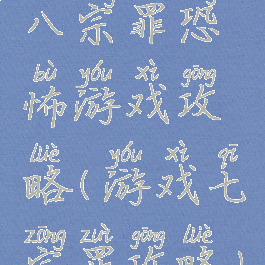 八宗罪恐
bù yóu xì gōng
怖游戏攻
lüè yóu xì qī
略(游戏七
zōng zuì gōng lüè
宗罪攻略)